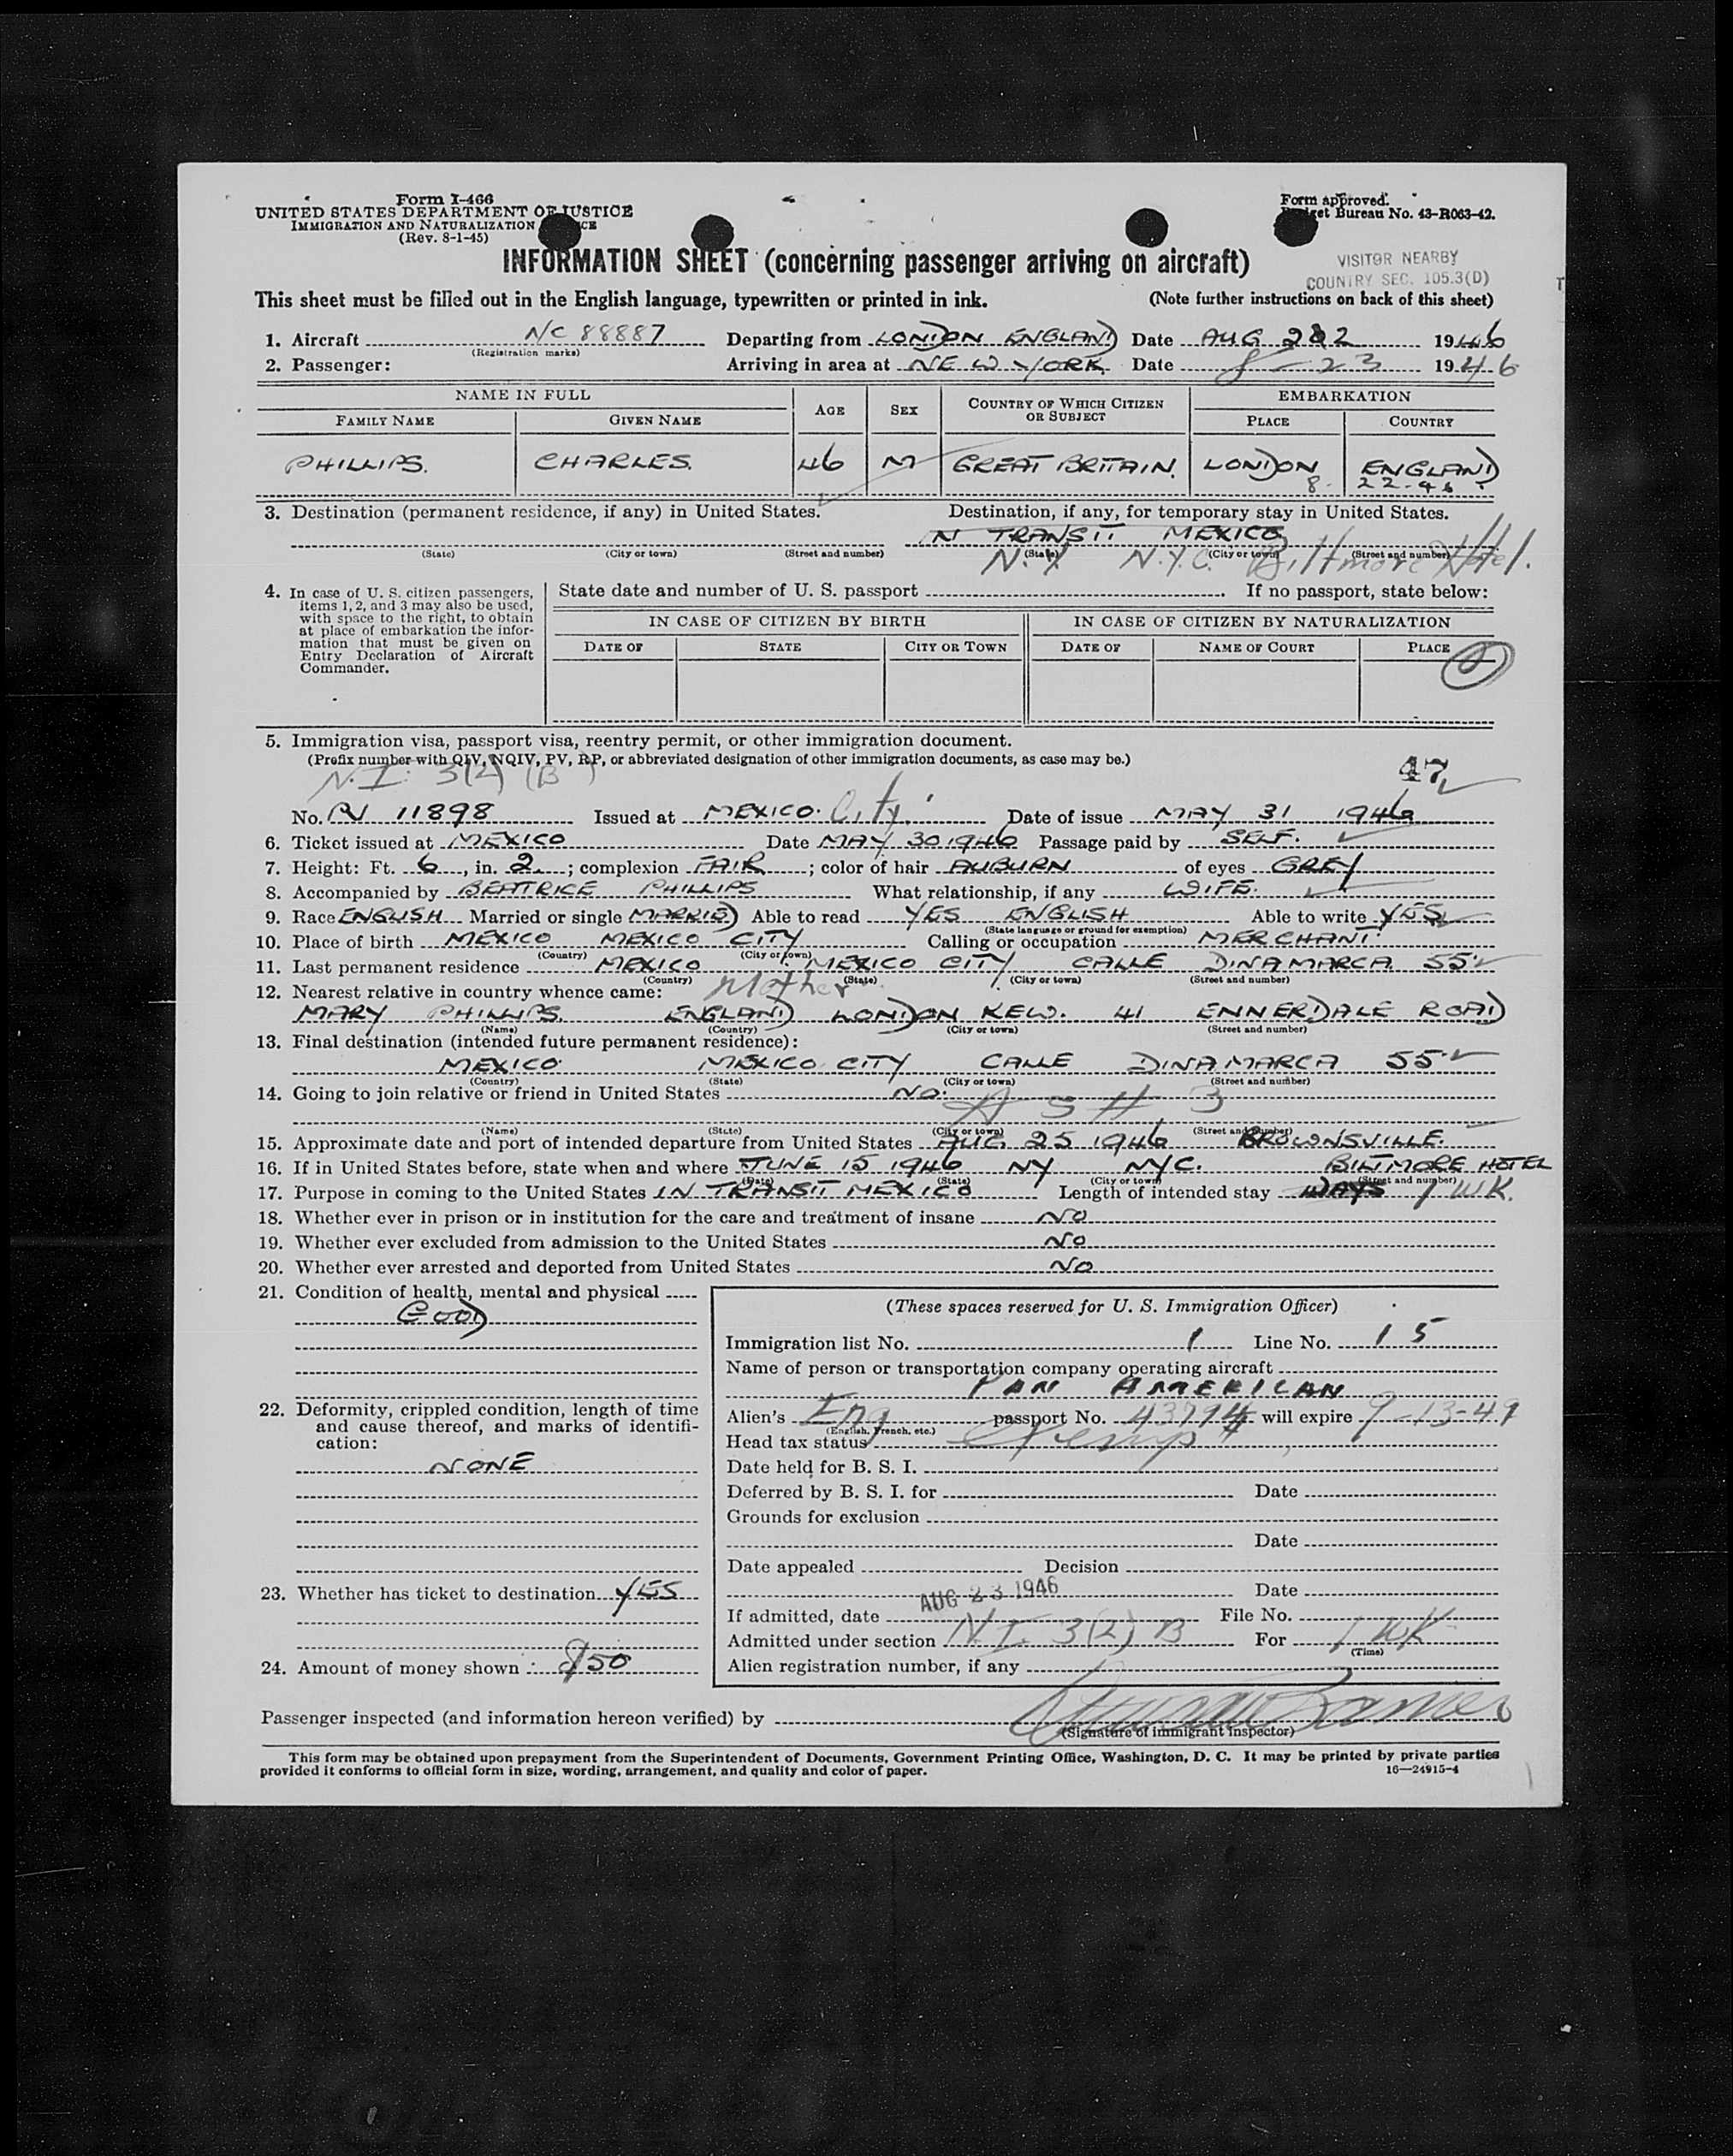 Form I-466
UNITED STATES DEPARTMENT OF JUSTICE
IMMIGRATION AND NATURALIZATION
(Rev. 8-1-45)
Form approved.
Budget Bureau No. 43-R063-42.
INFORMATION SHEET (concerning passenger arriving on aircraft)
VISITOR NEARBY
COUNTRY SEC. 105.3(D)
This sheet must be filled out in the English language, typewritten or printed in ink. (Note further instructions on back of this sheet)
1. Aircraft NC 88887 Departing from LONDON ENGLAND Date AUG 1946
(Registration marks)
2. Passenger: Arriving in area at NEW YORK. Date 8-23 1946
NAME IN FULL AGE SEX COUNTRY OF WHICH CITIZEN OR SUBJECT EMBARKATION
FAMILY NAME GIVEN NAME PLACE COUNTRY
PHILLIPS. CHARLES. 46 M GREAT BRITAIN. LONDON ENGLAND
8- 22-46
3. Destination (permanent residence, if any) in United States. Destination, if any, for temporary stay in United States.
IN TRANSIT MEXICO
(State) (City or town) (Street and number) (State) (City or town) (Street and number)
N.Y. N.Y.C. Biltmore Hotel.
4. In case of U. S. citizen passengers, items 1, 2, and 3 may also be used, with space to the right, to obtain at place of embarkation the information that must be given on Entry Declaration of Aircraft Commander.
State date and number of U. S. passport If no passport, state below:
IN CASE OF CITIZEN BY BIRTH IN CASE OF CITIZEN BY NATURALIZATION
DATE OF STATE CITY OR TOWN DATE OF NAME OF COURT PLACE
5. Immigration visa, passport visa, reentry permit, or other immigration document.
(Prefix number with QIV, NQIV, PV, RP, or abbreviated designation of other immigration documents, as case may be.)
N.I. 3(2) (B) 47
No. PV 11898 Issued at MEXICO. City. Date of issue MAY 31 1946
6. Ticket issued at MEXICO Date MAY 30 1946 Passage paid by SELF.
7. Height: Ft. 6, in. 2; complexion FAIR; color of hair AUBURN of eyes GREY
8. Accompanied by BEATRICE PHILLIPS What relationship, if any WIFE.
9. Race ENGLISH Married or single MARRIED Able to read YES ENGLISH Able to write YES
(State language or ground for exemption)
10. Place of birth MEXICO MEXICO CITY Calling or occupation MERCHANT.
(Country) (City or town)
11. Last permanent residence MEXICO MEXICO CITY CALLE DINAMARCA 55
(Country) (State) (City or town) (Street and number)
12. Nearest relative in country whence came: Mother
MARY PHILLIPS. ENGLAND LONDON KEW. 41 ENNERDALE ROAD
(Name) (Country) (City or town) (Street and number)
13. Final destination (intended future permanent residence):
MEXICO MEXICO CITY CALLE DINAMARCA 55
(Country) (State) (City or town) (Street and number)
14. Going to join relative or friend in United States NO.
A S H 3
(Name) (State) (City or town) (Street and number)
15. Approximate date and port of intended departure from United States AUG. 25 1946 BROWNSVILLE.
16. If in United States before, state when and where JUNE 15 1946 NY NYC. BILTMORE HOTEL
(Date) (State) (City or town) (Street and number)
17. Purpose in coming to the United States IN TRANSIT MEXICO Length of intended stay 1 WK.
18. Whether ever in prison or in institution for the care and treatment of insane NO
19. Whether ever excluded from admission to the United States NO
20. Whether ever arrested and deported from United States NO
21. Condition of health, mental and physical
GOOD
22. Deformity, crippled condition, length of time and cause thereof, and marks of identification:
NONE
23. Whether has ticket to destination YES
24. Amount of money shown $50
(These spaces reserved for U. S. Immigration Officer)
Immigration list No. 1 Line No. 15
Name of person or transportation company operating aircraft
PAN AMERICAN
Alien's Eng passport No. 43794 will expire 9-13-49
(English, French, etc.)
Head tax status Exempt
Date held for B. S. I.
Deferred by B. S. I. for Date
Grounds for exclusion
Date
Date appealed Decision
Date
AUG 23 1946
If admitted, date File No.
Admitted under section N.I. 3(2) B For 1 WK
(Time)
Alien registration number, if any
Passenger inspected (and information hereon verified) by
(Signature of Immigrant Inspector)
This form may be obtained upon prepayment from the Superintendent of Documents, Government Printing Office, Washington, D. C. It may be printed by private parties
provided it conforms to official form in size, wording, arrangement, and quality and color of paper. 16—24915-4